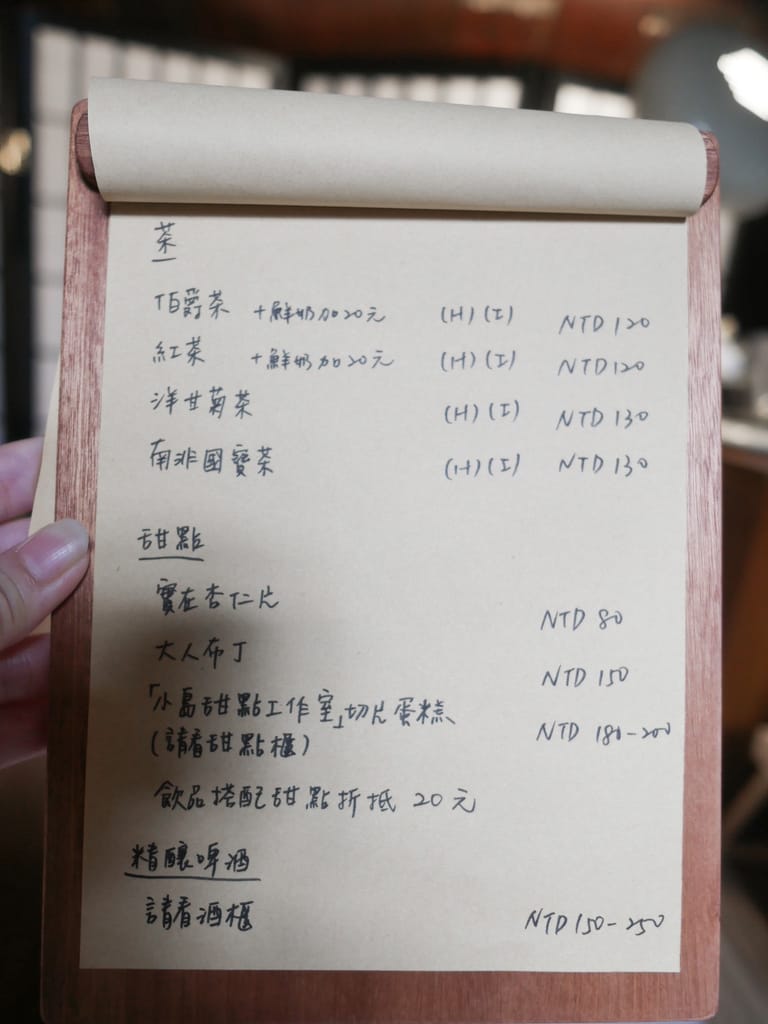 茶
伯爵茶 +鮮奶加20元 (H) (I) NTD 120
紅茶 +鮮奶加20元 (H) (I) NTD 120
洋甘菊茶 (H) (I) NTD 130
南非國寶茶 (H) (I) NTD 130
甜點
實在杏仁片 NTD 80
大人布丁 NTD 150
「小島甜點工作室」切片蛋糕 NTD 180-200
(請看甜點櫃)
飲品搭配甜點折抵 20元
精釀啤酒
請看酒櫃 NTD 150-250